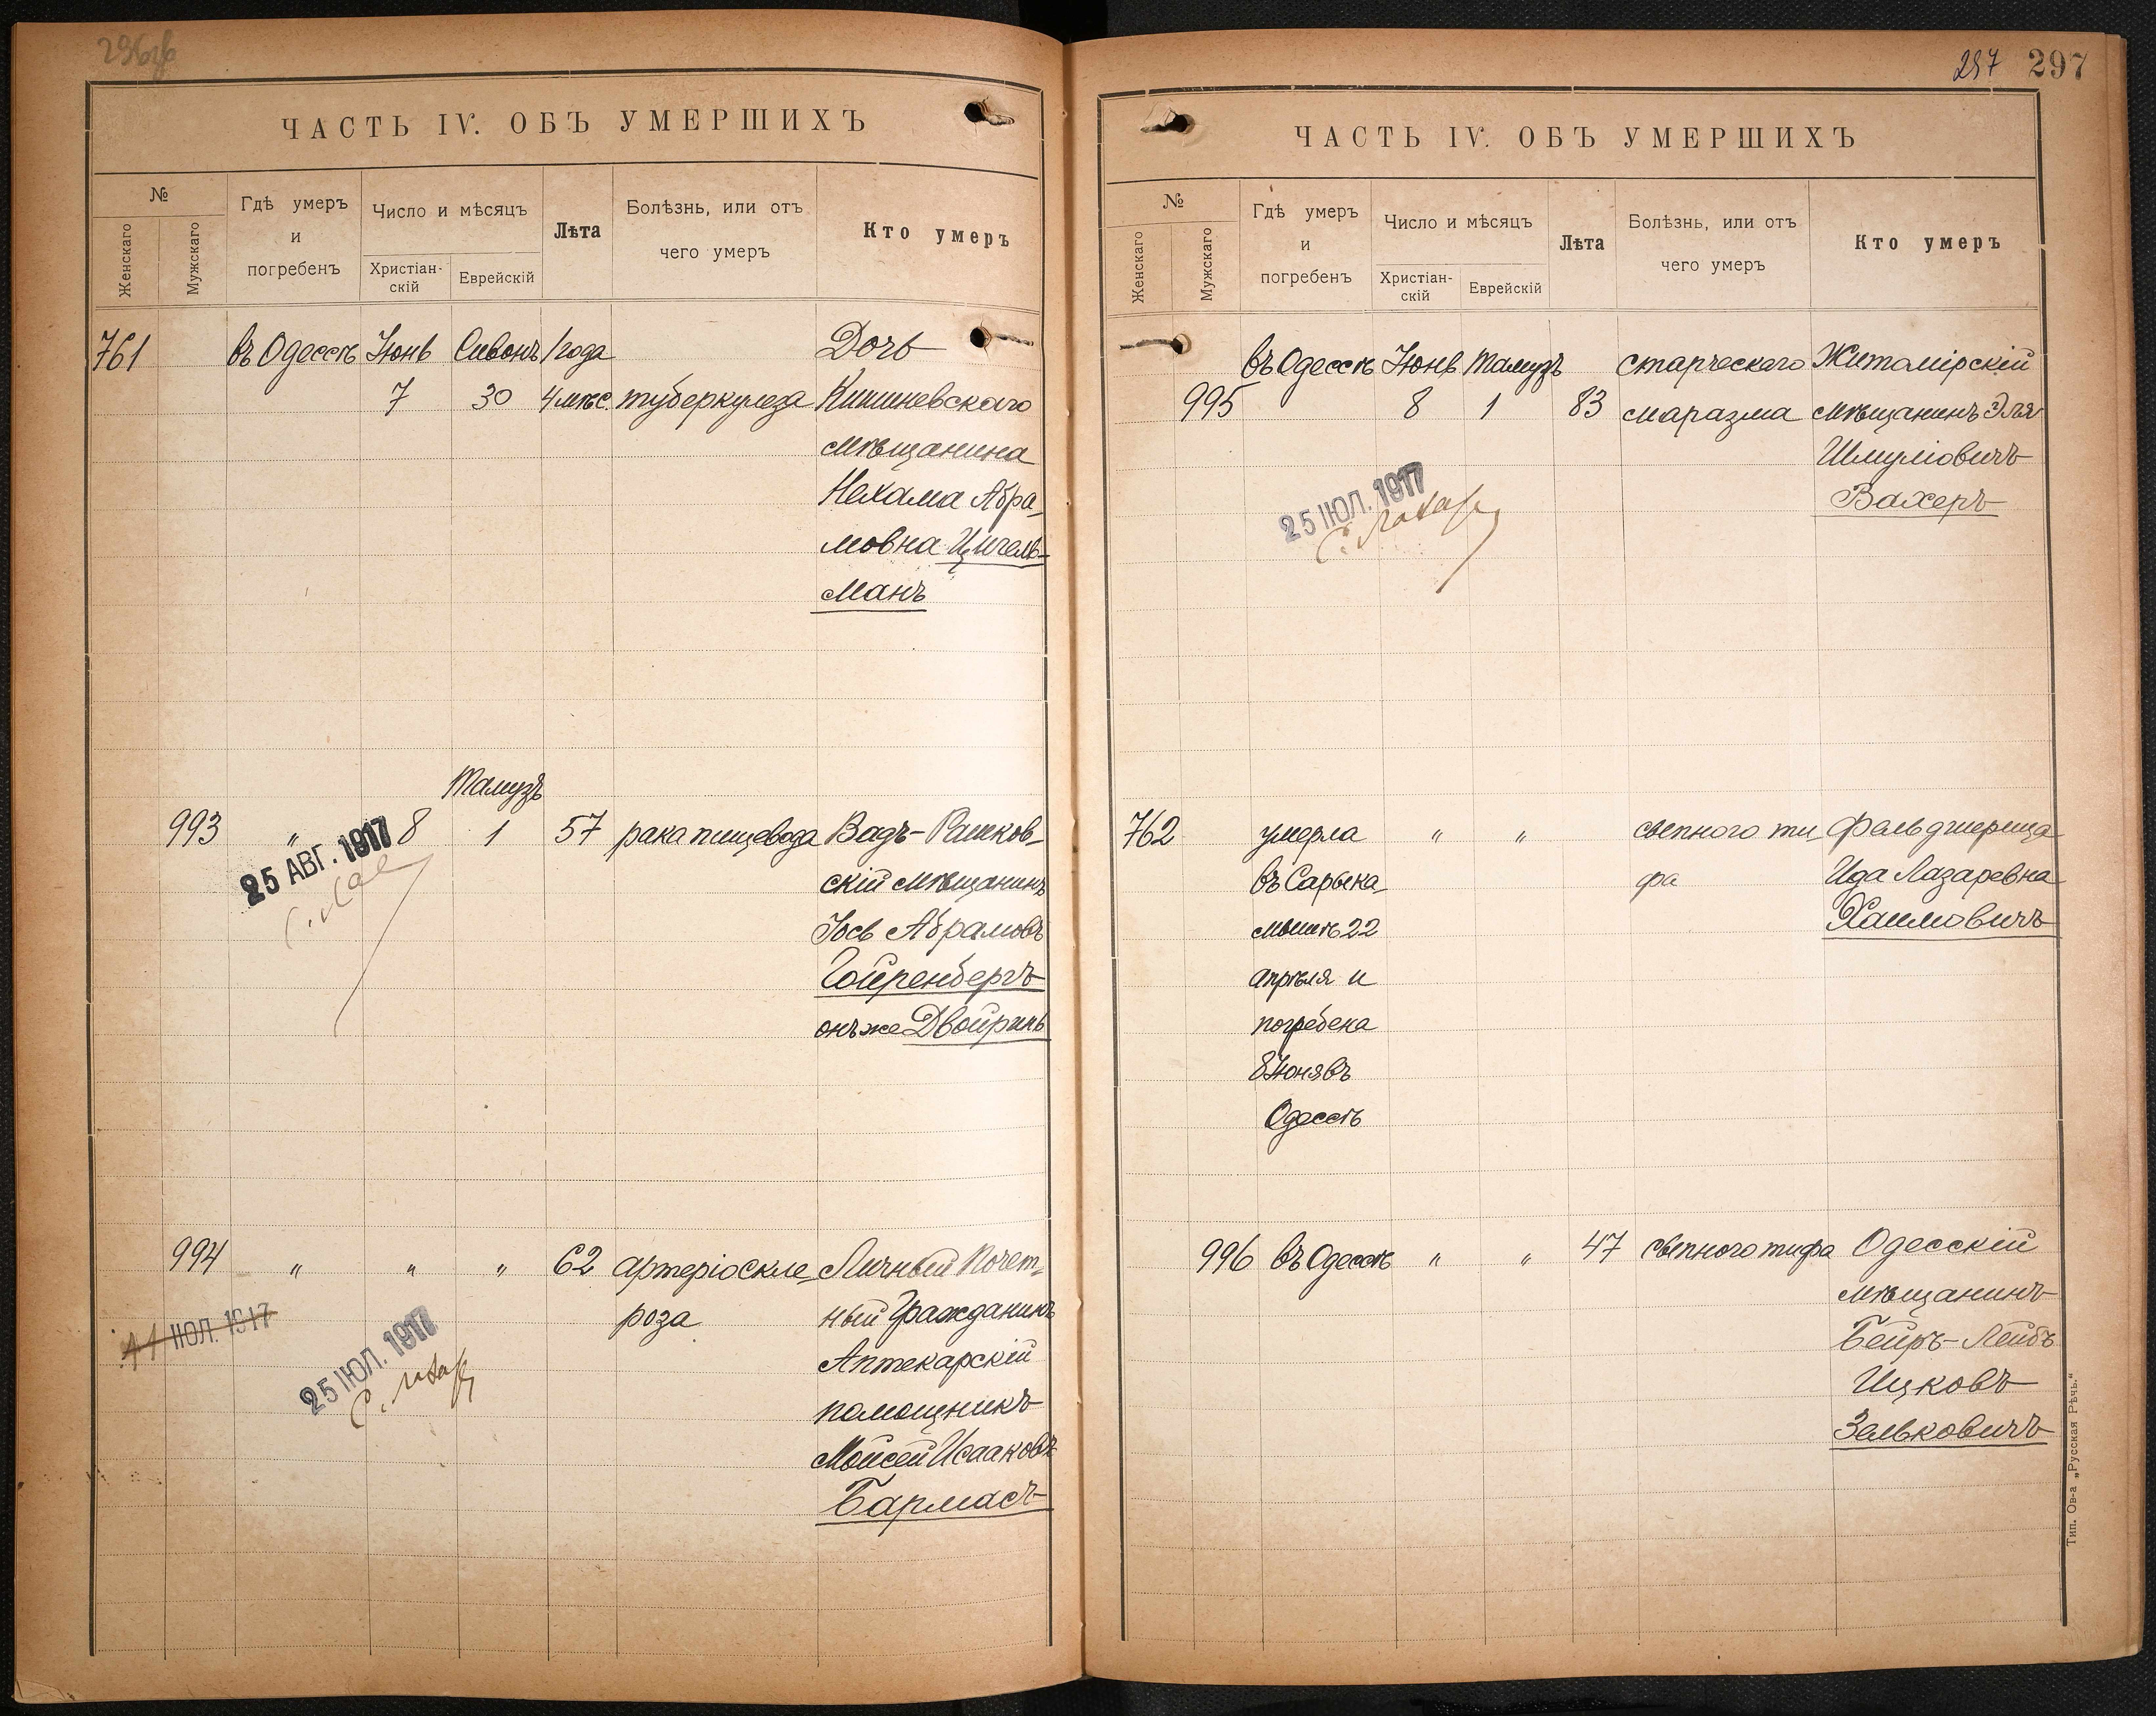 296об
ЧАСТЬ IV. ОБЪ УМЕРШИХЪ
№
Женскаго
Мужскаго
Гдѣ умеръ
и
погребенъ
Число и мѣсяцъ
Христіан-
скій
Еврейскій
Лѣта
Болѣзнь, или отъ
чего умеръ
Кто умеръ
761 въ Одессѣ Іюнь Сивонъ 1 года Дочь
7 30 4 мѣс. туберкулеза Кишиневскаго
мѣщанина
Нехама Абра-
мовна Цигель-
манъ
Тамузъ
993 " 8 1 57 рака пищевода Вадъ-Рашков-
скій мѣщанинъ
Іось Абрамовъ
Гойренбергъ
онъ же Двойринъ
25 АВГ. 1917
994 " " " 62 артеріоскле- Личный Почет-
роза ный Гражданинъ
Аптекарскій
помощникъ
Мойсей Исааковъ
Бармасъ
11 ІЮЛ. 1917
25 ІЮЛ. 1917
297 297
ЧАСТЬ IV. ОБЪ УМЕРШИХЪ
№
Женскаго
Мужскаго
Гдѣ умеръ
и
погребенъ
Число и мѣсяцъ
Христіан-
скій
Еврейскій
Лѣта
Болѣзнь, или отъ
чего умеръ
Кто умеръ
въ Одессѣ Іюнь Тамузъ старческаго Житомірскій
995 8 1 83 маразма мѣщанинъ Эля
Шмуліовичъ
Вахеръ
25 ІЮЛ. 1917
762 умерла " " сыпного ти- Фельдшерица
въ Сарыка- фа Ида Лазаревна
мышѣ 22 Хаимовичъ
апрѣля и
погребена
8 Іюня въ
Одессѣ
996 въ Одессѣ " " 47 сыпного тифа Одесскій
мѣщанинъ
Беиръ-Лейбъ
Ицковъ
Зельковичъ
Тип. Ов-а „Русская Рѣчь.“